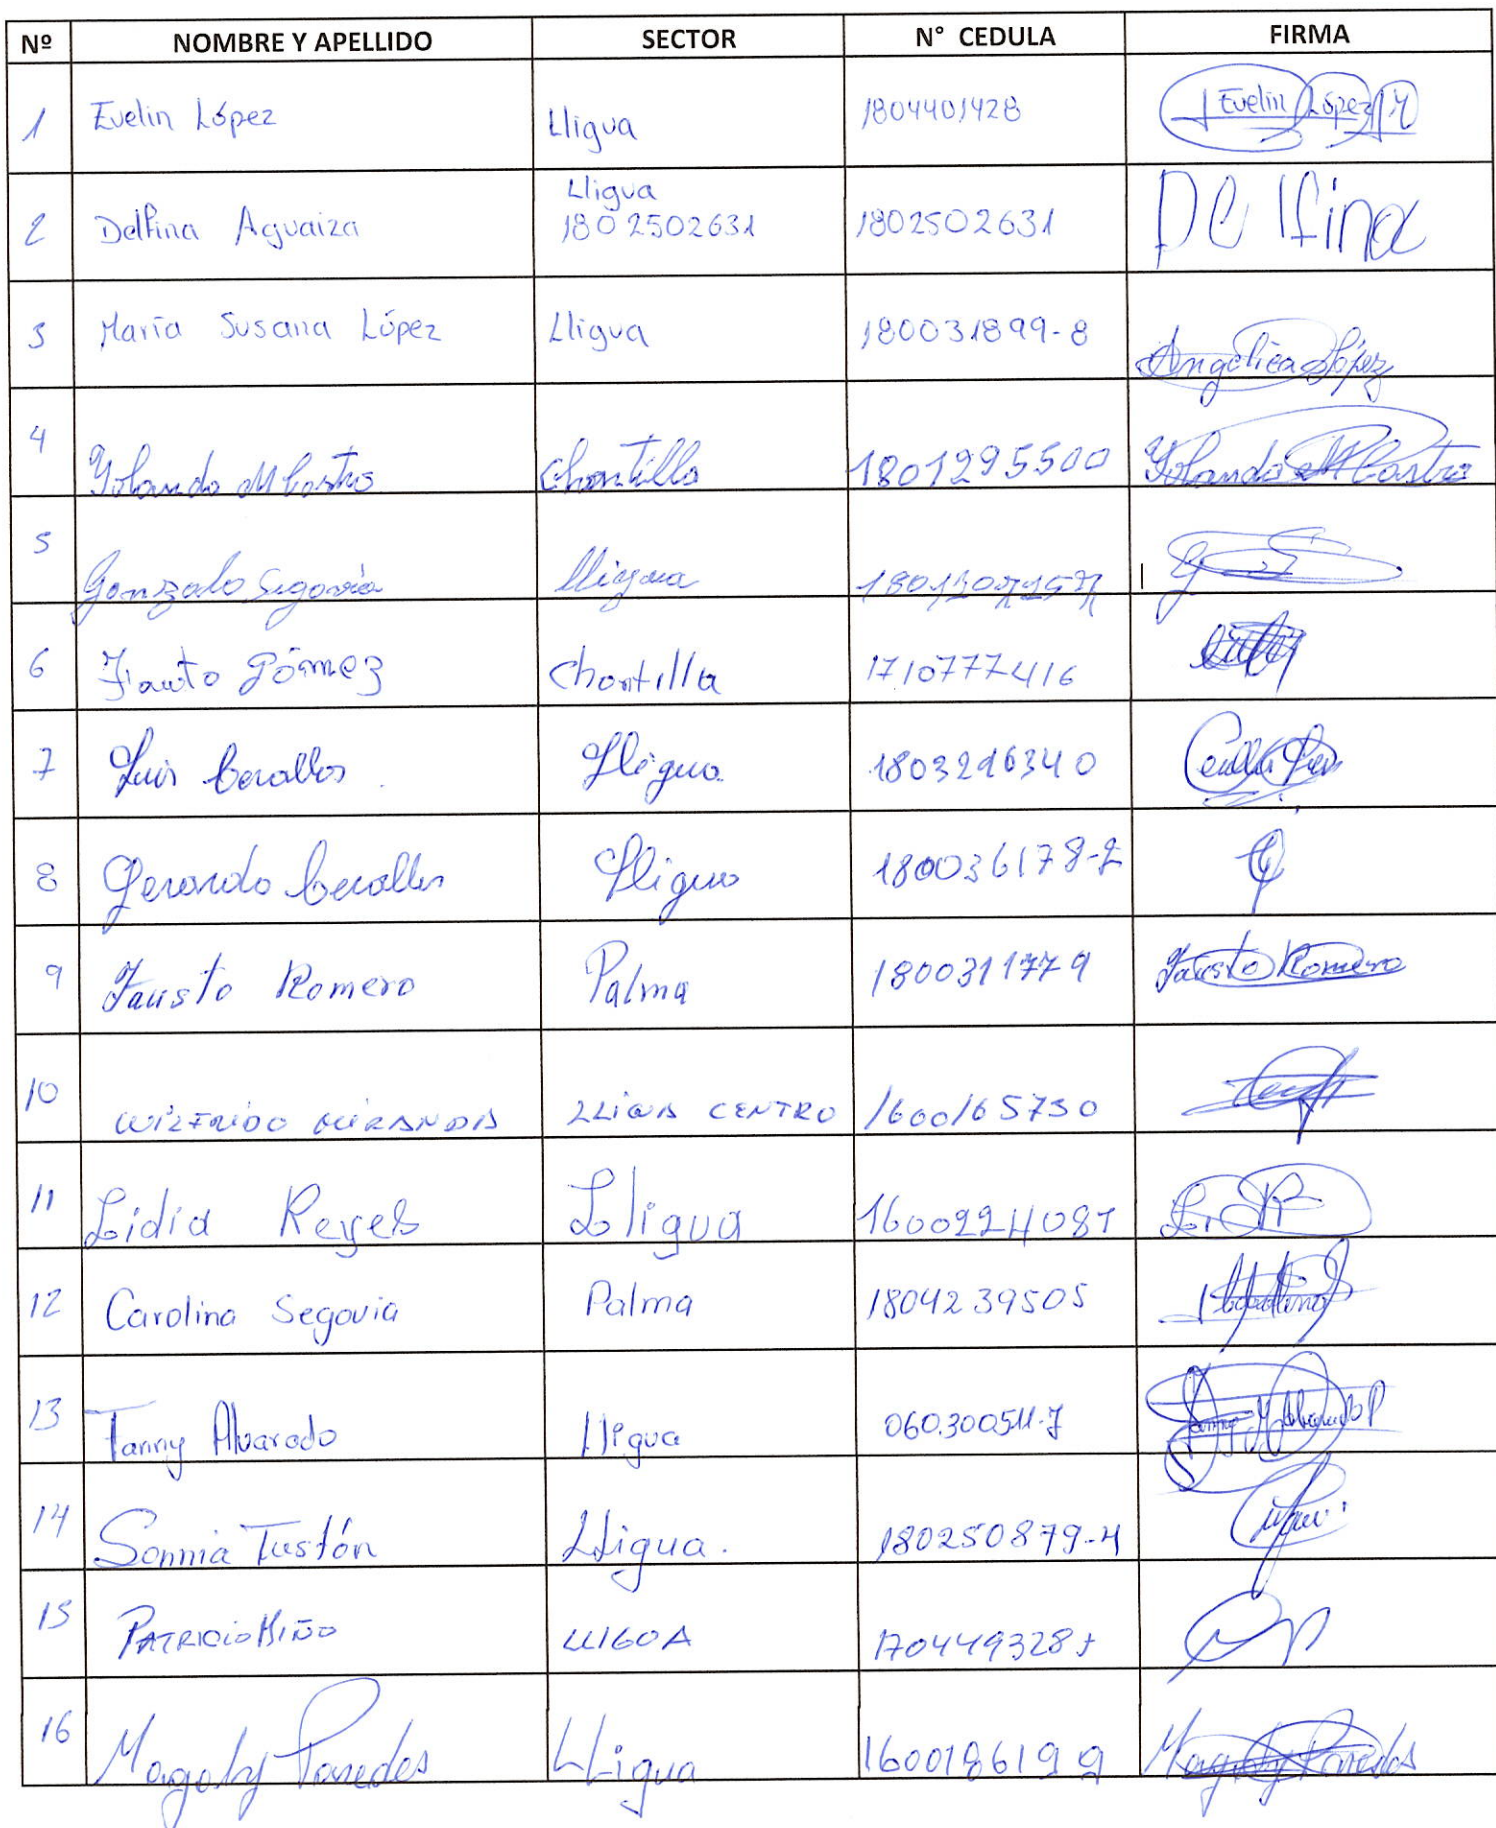 Nº NOMBRE Y APELLIDO SECTOR N° CEDULA FIRMA
1 Evelin López Lligua 1804401428 Evelin López M
Lligua
2 Delfina Aguaiza 1802502631 1802502631 Delfina
3 María Susana López Lligua 180031899-8 Angelica López
4 Yolanda M Castro Chontilla 1801295500 Yolanda M Castro
5 Gonzalo Segovia Lligua
6 Fausto Gómez Chontilla 1710777416
7 Luis Cevallos Lligua 1803216340
8 Gerardo Cevallos Lligua 180036178-2
9 Fausto Romero Palma 1800311779 Fausto Romero
10 WILFRIDO MIRANDA LLIGUA CENTRO 1600165730
11 Lidia Reyes Lligua 1600224087 L. R
12 Carolina Segovia Palma 1804239505 Carolina
13 Fanny Alvarado Lligua 060300511-7
14 Sonnia Tustón Lligua. 180250879-4
15 PATRICIO MIÑO LLIGUA 170449328
16 Magaly Paredes Lligua 1600186199 Magaly Paredes